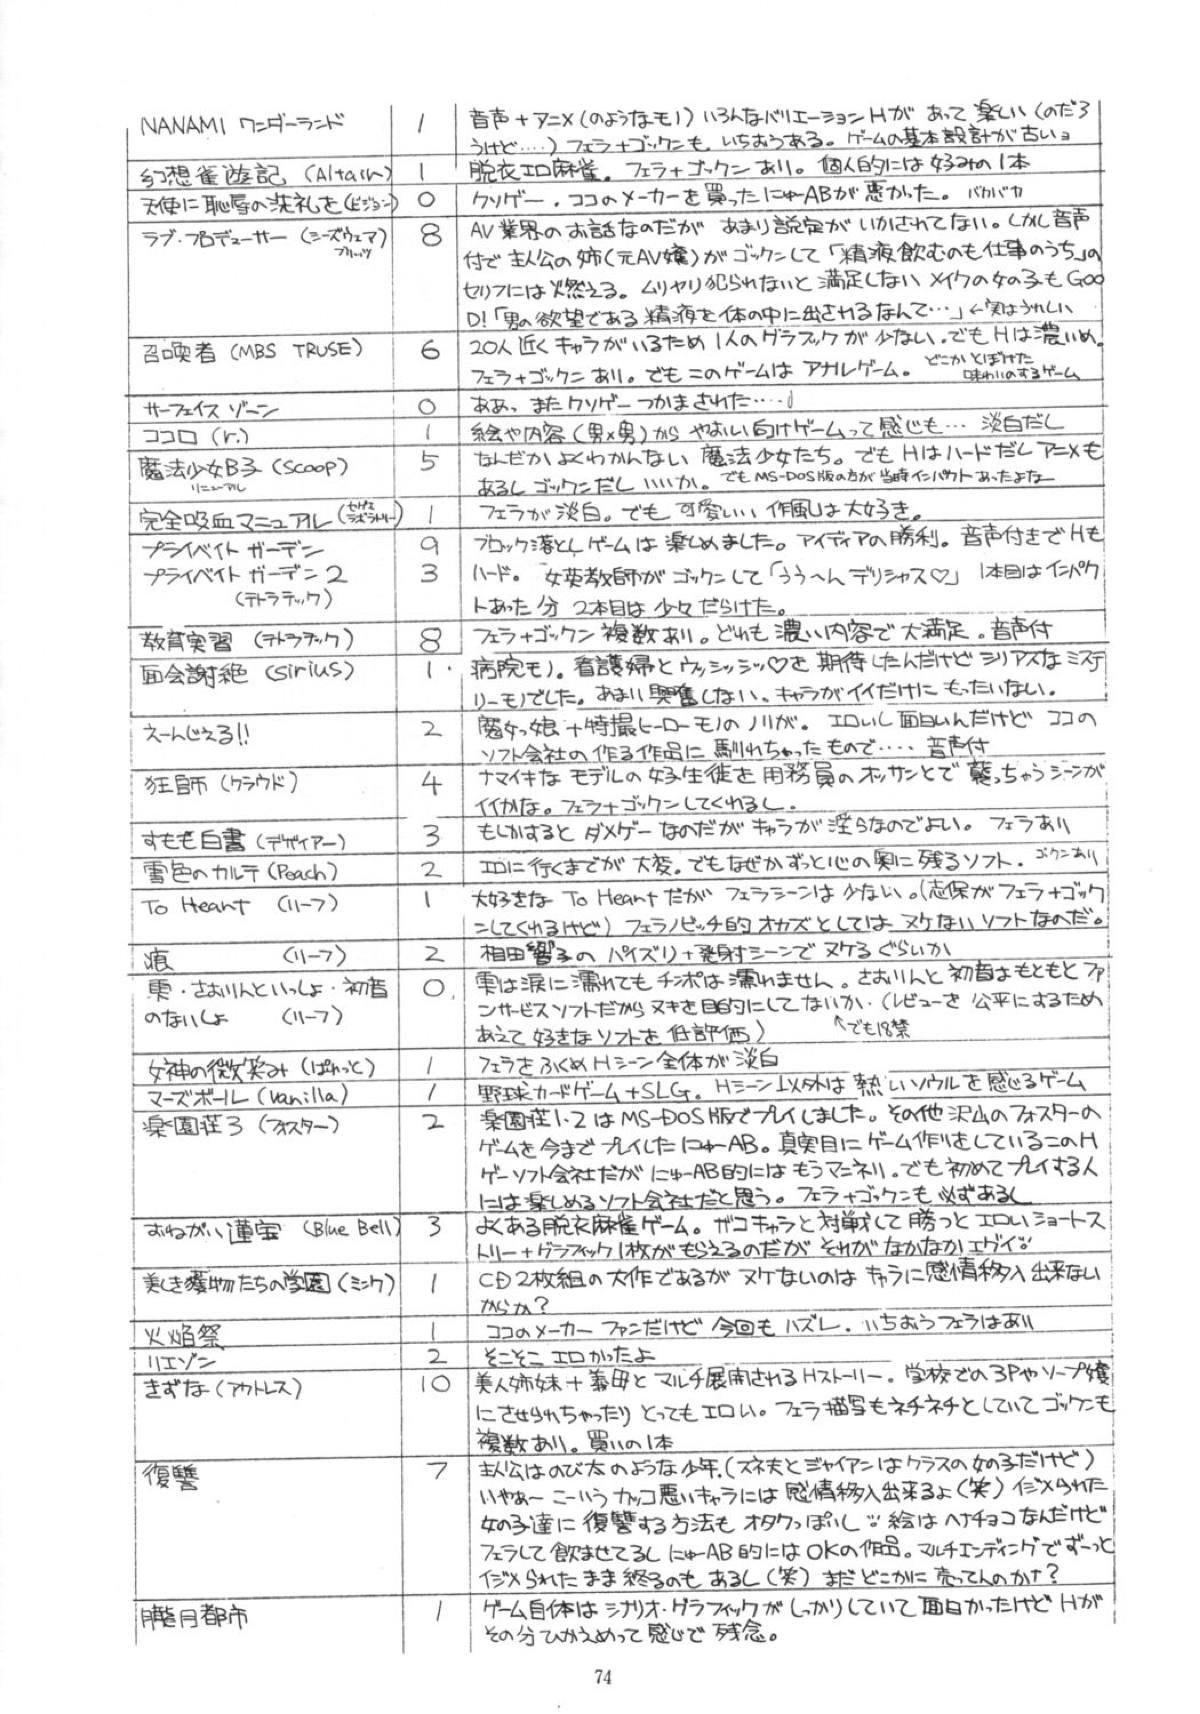 NANAMI ワンダーランド 1 音声+アニメ(のようなモノ) いろんなバリエーションHが あって 楽しい (のだろ
うけど……) フェラ+ゴックンも いちおうある。ゲームの基本設計が古いョ
幻想雀遊記 (Altain) 1 脱衣エロ麻雀。フェラ+ゴックン あり。個人的には好みの1本
天使に恥辱の洗礼を(ビジョン) 0 クソゲー。ココのメーカーを買ったにゅーABが悪かった。バカバカ
ラブ・プロデューサー (シーズウェア ブリッツ) 8 AV業界のお話なのだが あまり設定が いかされてない。しかし音声
付で主人公の姉(元AV嬢)がゴックンして「精液飲むのも仕事のうち」の
セリフには火燃える。ムリヤリ犯られないと満足しない メイクの女の子もGOO
D!「男の欲望である精液を体の中に出されるなんて…」←実はうれしい
召喚者 (MBS TRUSE) 6 20人近くキャラがいるため 1人のグラフィックが少ない。でも Hは濃いめ。
フェラ+ゴックン あり。でもこのゲームは アナルゲーム。どこかとぼけた
味わいのするゲーム
サーフェイス ゾーン 0 ああっ またクソゲー つかまされた……!
ココロ (r.) 1 絵や内容 (男×男) から やおい向けゲームって感じも… 淡白だし
魔法少女B子 (Scoop) リニューアル 5 なんだかよくわかんない 魔法少女たち。でも Hはハードだし アニメも
あるし ゴックンだし いいか。でもMS-DOS版の方が当時インパクトあったよなー
完全吸血マニュアル 1 フェラが淡白。でも 可愛いい 作風は大好き。
プライベイト ガーデン 9 ブロック落としゲームは 楽しめました。アイディアの勝利。音声付きで Hも
プライベイト ガーデン2 3 ハード。 女英教師が ゴックンして「うう〜ん デリシャス♡」 1本目はインパク
(テトラテック) トあった分 2本目は少々だらけた。
教育実習 (テトラテック) 8 フェラ+ゴックン 複数あり。どれも 濃い内容で大満足。音声付
面会謝絶 (Sirius) 1 病院モノ。看護婦と ウッシッシッ♡を 期待したんだけど シリアスな ミステ
リーモノでした。あまり興奮しない、キャラがイイだけに もったいない。
えーんじぇる!! 2 魔女っ娘+特撮ヒーローモノのノリが。エロいし 面白いんだけど ココの
ソフト会社の作る作品に 馴れちゃったもので…… 音声付
狂師 (クラウド) 4 ナマイキな モデルの女子生徒を 用務員のオッサンとで 襲っちゃうシーンが
イイかな。フェラ+ゴックンしてくれるし。
すもも白書 (デザイアー) 3 もしかすると ダメゲーなのだが キャラが 淫らなのでよい。フェラあり
雪色のカルテ (Peach) 2 エロに行くまでが 大変。でもなぜかずっと心の奥に残るソフト。ゴックンあり
To Heart (リーフ) 1 大好きな To Heart だが フェラシーンは 少ない。(志保がフェラ+ゴック
ンしてくれるけど) フェラノビッチ的 オカズとしては、ヌケないソフトなのだ。
痕 (リーフ) 2 相田響子の パイズリ+発射シーンで ヌケる ぐらいか
雫・さおりんといっしょ・初音 0 雫は涙に濡れても チンポは濡れません。さおりんと 初音はもともと ファ
のないしょ (リーフ) ンサービスソフトだから ヌキを目的にしてないか・(レビューを 公平にするため
あえて好きなソフトを 低評価) ↖でも18禁
女神の微笑み (ぱれっと) 1 フェラをふくめ Hシーン全体が 淡白
マーズボール (Vanilla) 1 野球カードゲーム+SLG。Hシーン以外は 熱いソウルを感じるゲーム
楽園荘3 (フォスター) 2 楽園荘1・2はMS-DOS版でプレイしました。その他 沢山のフォスターの
ゲームを今までプレイしたにゅーAB。真実目に ゲーム作りをしているこのH
ゲーソフト会社だが にゅーAB的には もうマンネリ。でも初めてプレイする人
には楽しめるソフト会社だと思う。フェラ+ゴックンも 必ずあるし
おねがい蓮宝 (Blue Bell) 3 よくある脱衣麻雀ゲーム。ザコキャラと対戦して 勝つと エロいショートス
トリー+グラフィック1枚が もらえるのだが それが なかなか エグイ
美しき獲物たちの学園 (ミンク) 1 CD2枚組の大作であるが ヌケないのは キャラに 感情移入出来ない
からか?
火焔祭 1 ココのメーカー ファンだけど 今回も ハズレ。いちおうフェラはあり
リエゾン 2 そこそこ エロかったよ
きずな (アウトレス) 10 美人姉妹+義母と マルチ展開されるHストーリー。学校での3Pやソープ嬢
にさせられちゃったり とってもエロい。フェラ描写もネチネチとしていて ゴックンも
複数あり。買いの1本
復讐 7 主人公はのび太のような少年、(スネ夫とジャイアンは クラスの女の子だけど)
いやぁ〜 こーいう カッコ悪いキャラには 感情移入出来るよ (笑) イジメられた
女の子達に 復讐する方法も オタクっぽいし 絵は ヘナチョコなんだけど
フェラして飲ませてるし にゅーAB的には OKの作品。マルチエンディングで ずーっと
イジメられたまま 終るのも あるし (笑) まだどこかに 売ってんのかナ?
朧月都市 1 ゲーム自体は シナリオ・グラフィックが しっかりしていて 面白かったけど Hが
その分ひかえめって感じで 残念。
74